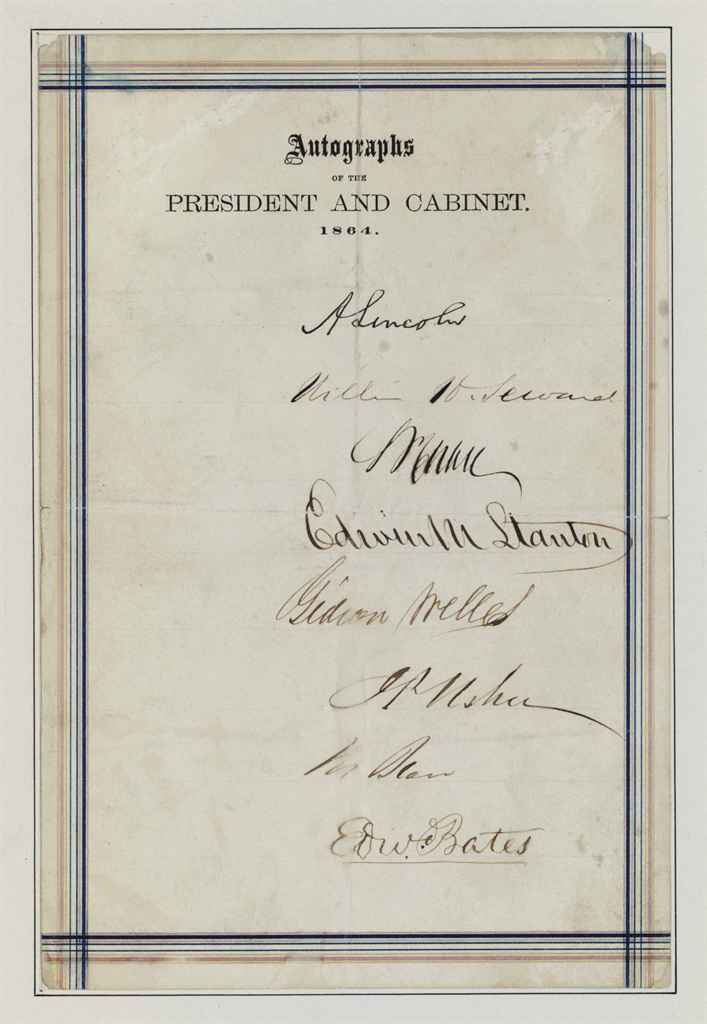 Autographs
OF THE
PRESIDENT AND CABINET.
1864.
A Lincoln
William H. Seward
Edwin M Stanton
Gideon Welles
J P Usher
M Blair
Edw. Bates